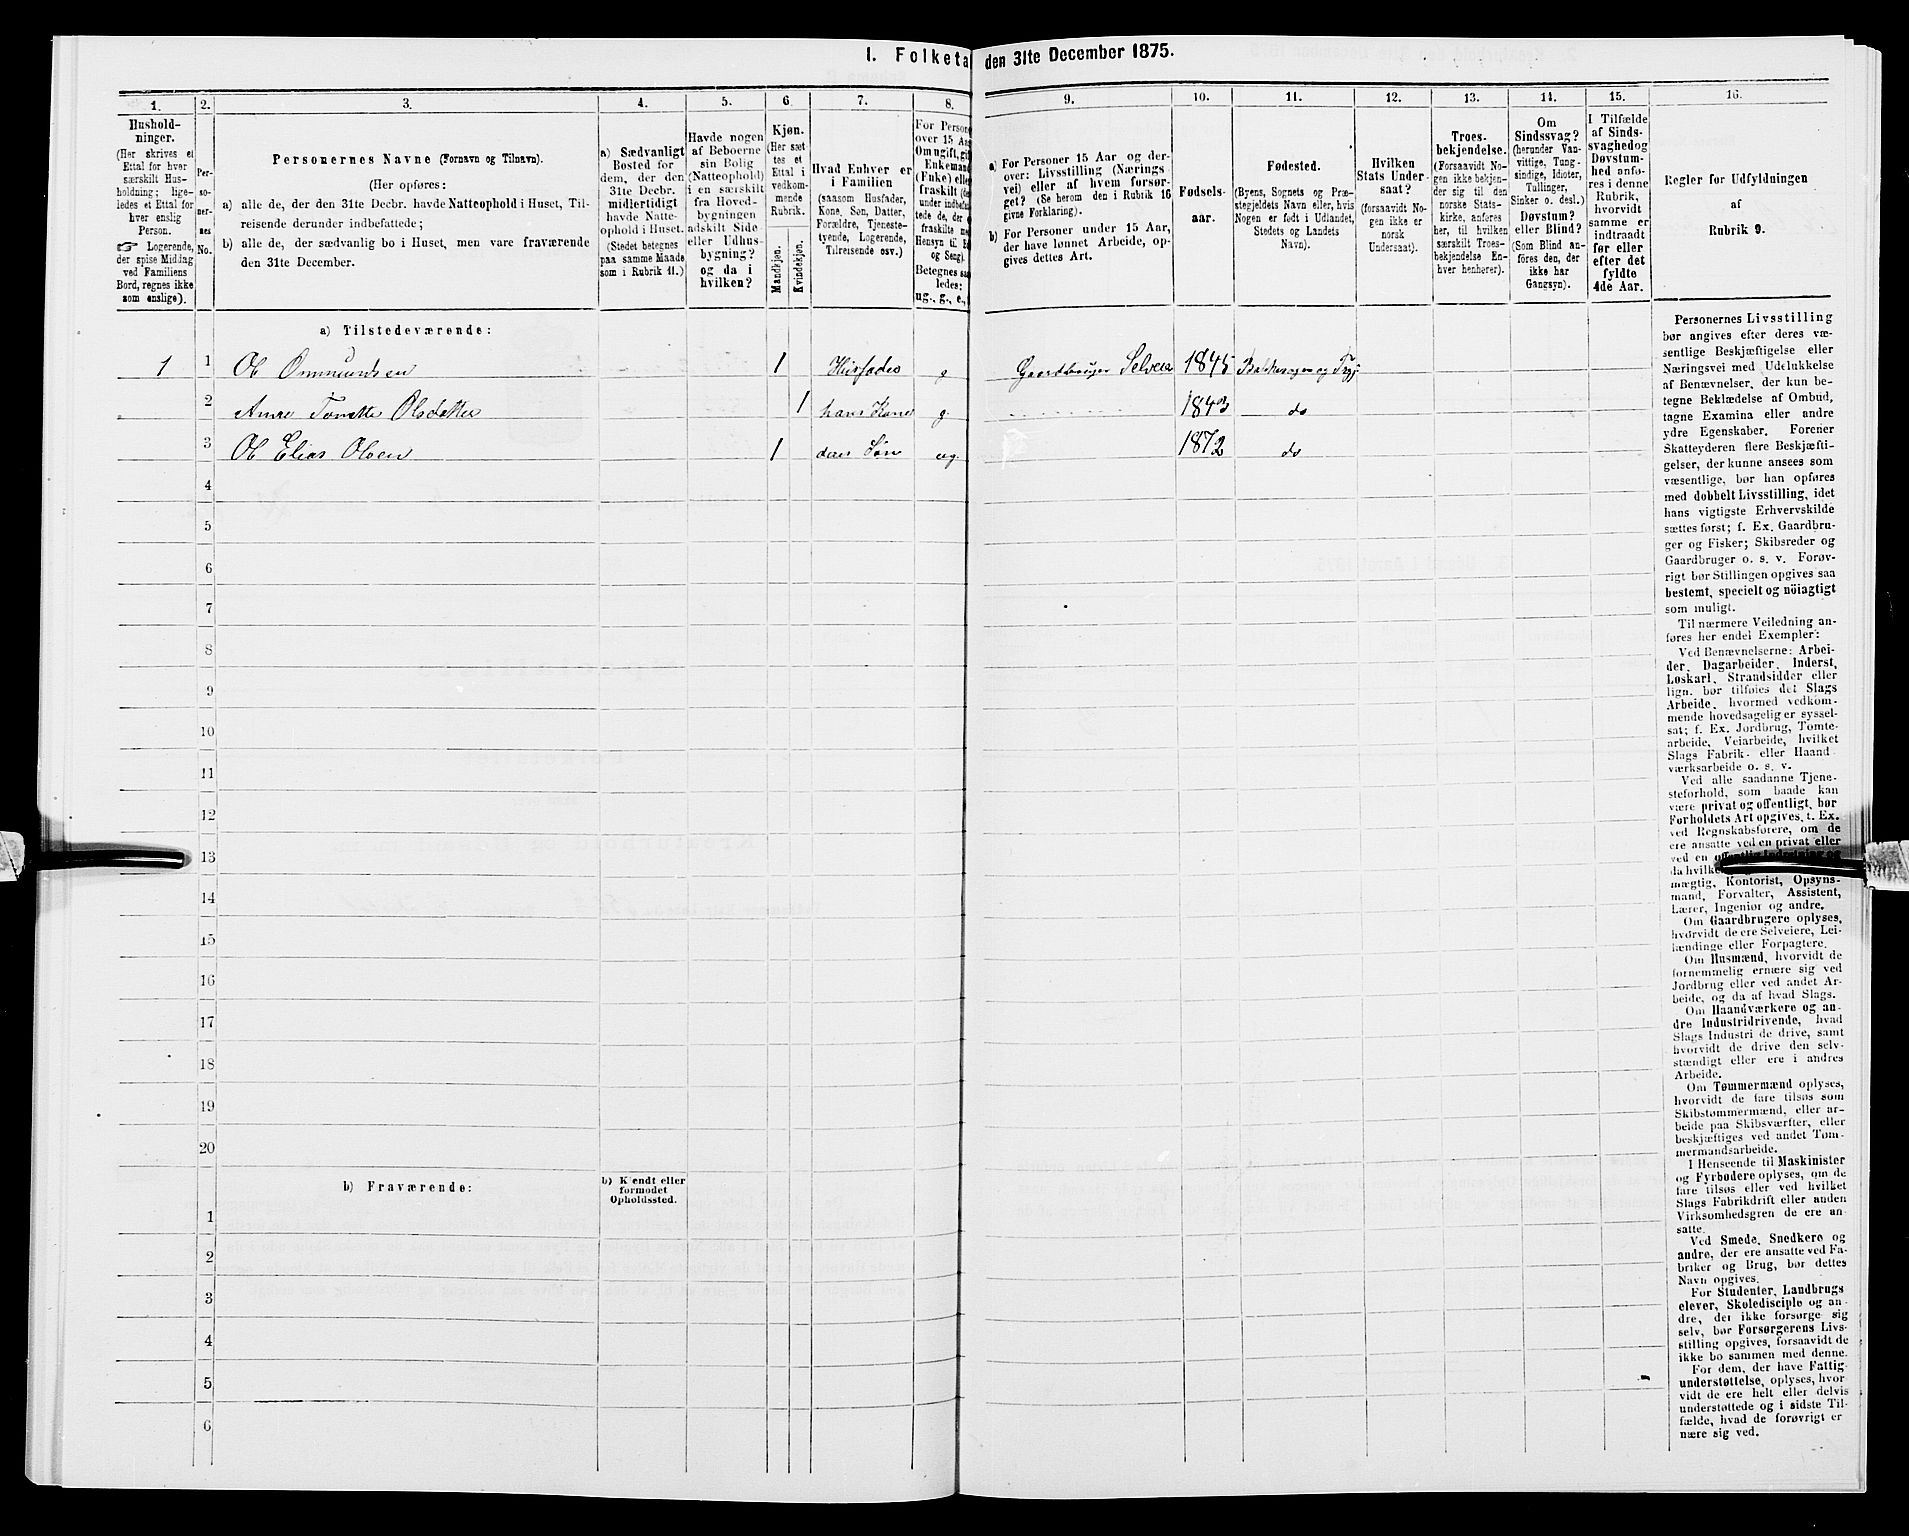 I. Folketa
den 31te December 1875.
1. 2. 3. 4. 5. 6. 7. 8. 9. 10. 11. 12. 13. 14. 15. 16.
Hushold-
ninger.
(Her skrives et
Ettal for hver
særskilt Hus-
holdning; lige-
ledes et Ettal for
hver enslig
Person.
☞ Logerende,
der spise Middag
ved Familiens
Bord, regnes ikke
som enslige).
Per-
so-
ner-
nes
No.
Personernes Navne (Fornavn og Tilnavn).
(Her opføres:
a) alle de, der den 31te Decbr. havde Natteophold i Huset, Til-
reisende derunder indbefattede;
b) alle de, der sædvanlig bo i Huset, men vare fraværende
den 31te December.
a) Sædvanligt
Bosted for
dem, der den
31te Decbr.
midlertidigt
havde Natte-
ophold i Huset.
(Stedet betegnes
paa samme Maade
som i Rubrik 11.)
Havde nogen
af Beboerne
sin Bolig
(Natteophold)
i en særskilt
fra Hoved-
bygningen
adskilt Side-
eller Udhus-
bygning?
og da i
hvilken?
Kjøn.
(Her sæt-
tes et
Ettal i
vedkom-
mende
Rubrik.
Mandkjøn.
Kvindekjøn.
Hvad Enhver er
i Familien
(saasom Husfader,
Kone, Søn, Datter,
Forældre, Tjeneste-
tyende, Logerende,
Tilreisende osv.)
For Persone
over 15 Aa
Om ugift, gi
Enkemand
(Enke) elle
fraskilt
under indbefat-
tede de, der e
fraskilte
Hensyn til B
og Seng).
Betegnes saa
ledes:
ug., g., e.,
a) For Personer 15 Aar og der-
over: Livsstilling (Nærings-
vei) eller af hvem forsør-
get? (Se herom den i Rubrik 16
givne Forklaring).
b) For Personer under 15 Aar,
der have lønnet Arbeide, op-
gives dettes Art.
Fødsels-
aar.
Fødested.
(Byens, Sognets og Præ-
stegjeldets Navn eller, hvis
Nogen er født i Udlandet,
Stedets og Landets
Navn).
Hvilken
Stats Under-
saat?
(forsaavidt No-
gen ikke er
norsk
Undersaat).
Troes-
bekjendelse.
(Forsaavidt No-
gen ikke bekjen-
der sig til den
norske Stats-
kirke, anføres
her, til hvilken
særskilt Troes-
bekjendelse En-
hver henhører).
Om
Sindssvag?
(herunder Van-
vittige, Tung-
sindige, Idioter,
Tullinger,
Sinker o. desl.)
Døvstum?
eller Blind?
(Som Blind an-
føres den, der
ikke har
Gangsyn).
I Tilfælde
af Sinds-
svaghed og
Døvstum-
hed anfø-
res i denne
Rubrik,
hvorvidt
samme er
indtraadt
før eller
efter det
fyldte
4de Aar.
Regler for Udfyldningen
af
Rubrik 9.
a) Tilstedeværende:
1 1 Ol Ommundsen 1 Husfader g Gaardbruger Selveier 1845
2 Anne Tonette Olsdatter 1 hans Kone g 1843 do
3 Ol Elias Olsen 1 deres Søn ug. 1872 do
4
5
6
7
8
9
10
11
12
13
14
15
16
17
18
19
20
b) Fraværende:
b) Kjendt eller
formodet
Opholdssted.
1
2
3
4
5
6
Personernes Livsstilling
bør angives efter deres væ-
sentlige Beskjæftigelse eller
Næringsvei med Udelukkelse
af Benævnelser, der kun be-
tegne Beklædelse af Ombud,
tagne Examina eller andre
ydre Egenskaber. Forener
Skatteyderen flere Beskjæfti-
gelser, der kunne ansees som
væsentlige, bør han opføres
med dobbelt Livsstilling, idet
hans vigtigste Erhvervskilde
sættes først; f. Ex. Gaardbru-
ger og Fisker; Skibsreder og
Gaardbruger o. s. v. Forøv-
rigt bør Stillingen opgives saa
bestemt, specielt og nöiagtigt
som muligt.
Til nærmere Veiledning an-
føres her endel Exempler:
Ved Benævnelserne: Arbei-
der, Dagarbeider, Inderst,
Løskarl, Strandsidder eller
lign. bør tilføies det Slags
Arbeide, hvormed vedkom-
mende hovedsagelig er syssel-
sat; f. Ex. Jordbrug, Tomte-
arbeide, Veiarbeide, hvilket
Slags Fabrik- eller Haand-
værksarbeide o. s. v.
Ved alle saadanne Tjene-
steforhold, som baade kan
være privat og offentligt, bør
Forholdets Art opgives, f. Ex.
ved Regnskabsførere, om de
ere ansatte ved en privat eller
ved en offentlig Indretning og
da hvilken
mægtig, Kontorist, Opsyns-
mand, Forvalter, Assistent,
Lærer, Ingeniør og andre.
Om Gaardbrugere oplyses,
hvorvidt de ere Selveiere, Lei-
lændinge eller Forpagtere.
Om Husmænd, hvorvidt de
fornemmelig ernære sig ved
Jordbrug eller ved andet Ar-
beide, og da af hvad Slags.
Om Haandværkere og an-
dre Industridrivende, hvad
Slags Industri de drive, samt
hvorvidt de drive den selv-
stændigt eller ere i andres
Arbeide.
Om Tømmermænd oplyses,
hvorvidt de fare tilsøs som
Skibstømmermænd, eller ar-
beide paa Skibsværfter, eller
beskjæftiges ved andet Tøm-
mermandsarbeide.
I Henseende til Maskinister
og Fyrbødere oplyses, om de
fare tilsøs eller ved hvilket
Slags Fabrikdrift eller anden
Virksomhedsgren de ere an-
satte.
Ved Smede, Snedkere og
andre, der ere ansatte ved Fa-
briker og Brug, bør dettes
Navn opgives.
For Studenter, Landbrugs-
elever, Skoledisciple og an-
dre, der ikke forsørge sig
selv, bør Forsørgerens Livs-
stilling opgives, forsaavidt de
ikke bo sammen med denne.
For dem, der have Fattig-
understøttelse, oplyses, hvor-
vidt de ere helt eller delvis
understøttede og i sidste Til-
fælde, hvad de forøvrigt er-
nære sig ved.